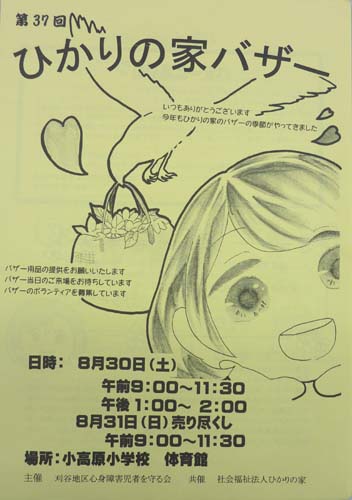 第37回
ひかりの家バザー
いつもありがとうございます
今年もひかりの家のバザーの季節がやってきました
バザー用品の提供をお願いいたします
バザー当日のご来場をお待ちしています
バザーのボランティアを募集しています
日時： 8月30日（土）
午前9：00〜11：30
午後1：00〜 2：00
8月31日（日）売り尽くし
午前9：00〜11：30
場所：小高原小学校 体育館
主催 刈谷地区心身障害児者を守る会 共催 社会福祉法人ひかりの家